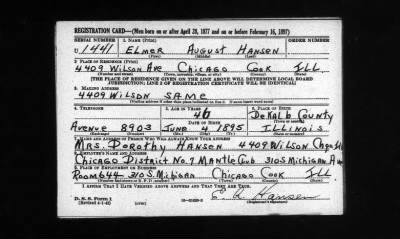 REGISTRATION CARD—(Men born on or after April 28, 1877 and on or before February 16, 1897)
SERIAL NUMBER 1. NAME (Print) ORDER NUMBER
U 1441 ELMER AUGUST HANSEN
(First) (Middle) (Last)
2. PLACE OF RESIDENCE (Print)
4409 WILSON AVE CHICAGO COOK ILL.
(Number and street) (Town, township, village, or city) (County) (State)
[THE PLACE OF RESIDENCE GIVEN ON THE LINE ABOVE WILL DETERMINE LOCAL BOARD
JURISDICTION; LINE 2 OF REGISTRATION CERTIFICATE WILL BE IDENTICAL]
3. MAILING ADDRESS
4409 WILSON SAME
[Mailing address if other than place indicated on line 2. If same insert word same]
4. TELEPHONE 5. AGE IN YEARS 6. PLACE OF BIRTH
46 DEKALB COUNTY
DATE OF BIRTH (Town or county)
AVENUE 8903 JUNE 4 1895 ILLINOIS
(Exchange) (Number) (Mo.) (Day) (Yr.) (State or country)
7. NAME AND ADDRESS OF PERSON WHO WILL ALWAYS KNOW YOUR ADDRESS
MRS. DOROTHY HANSEN 4409 WILSON
8. EMPLOYER'S NAME AND ADDRESS
CHICAGO DISTRICT NO. 7 MANTLE CLUB 310 S MICHIGAN AV
9. PLACE OF EMPLOYMENT OR BUSINESS
ROOM 644 310 S. MICHIGAN CHICAGO COOK ILL
(Number and street or R. F. D. number) (Town) (County) (State)
I AFFIRM THAT I HAVE VERIFIED ABOVE ANSWERS AND THAT THEY ARE TRUE.
D. S. S. Form 1
(Revised 4-1-42) (over) Hansen
(Registrant's signature)